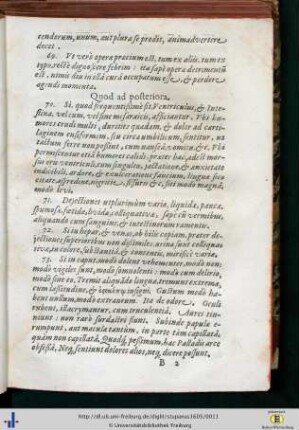 vendorum, unum, aut plura se prodit, animadvertere
decet.
69. Ut verò opera precium est, tum ex aliis, tum ex
typo, rectè dignoscere febrim: ita sæpè opera detrimentum
est, nimis diu in illâ curâ occupatum esse, & perdere
agendi momenta.
Quod ad posteriora.
70. Si, quod frequentissimè fit, Ventriculus, & Inte-
stina, vel cum, vel sine mesaraicis, afficiantur. Ubi hu-
mores crudi multi, durities quædam, & dolor ad carti-
laginem ensiformem, sive circa umbilicum, sentitur, na
tactum ferre non possint, cum nausea, vomitu, &c. Ubi
permisceantur etiã humores calidi, præter hæc, adest mor-
sus oris ventriculi, cum singultu, jactatione, & anxietate
indicibili, ardore, & exulceratione faucium, lingua sicca
citate, asperdine, nigritie, fissuris &c, siti modò magnâ,
modò levi.
71. Dejectiones utplurimùm variæ, liquidæ, paucæ,
spumosæ, fœtidæ, lividæ, colliquativæ, sæpè cũ vermibus,
aliquando cum sanguine, & intestinorum ramentis.
72. Si in hepar, & venas, ab bile copiam, præter de-
jectiones superioribus non dißimiles, urina sunt colliqua-
tivæ, in colore, substantiâ, & contentis, mirificè variæ.
73. Si in caput, modò delirat vehementer, modò non;
modò vigiles sunt, modò somnolenti: modò cum delirio,
modò sine eo. Tremit aliquâdo lingua, tremunt extrema,
cum lassitudine, & Gustum modò ha-
bent nullum, modò extraneum. Ita de odore. Oculi
rubent, illacrymantur, cum truculentiâ. Aures tin-
niunt: non rarò surdastri sunt. Subinde papulæ e-
rumpunt, aut macula tantùm, in parte tàm capillatâ,
quàm non capillatâ. Quodq́; peßimum, hac Palladis arce
obseßâ, Neq; sentiunt dolores alios, neq; dicere possunt.
B 2
http://dl.ub.uni-freiburg.de/diglit/stupanus1605/0011
© Universitätsbibliothek Freiburg